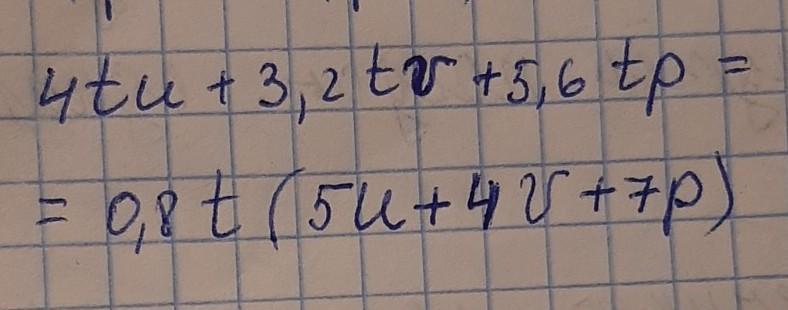 4tu + 3,2 tv + 5,6 tp =
= 0,8 t (5u + 4v + 7p)